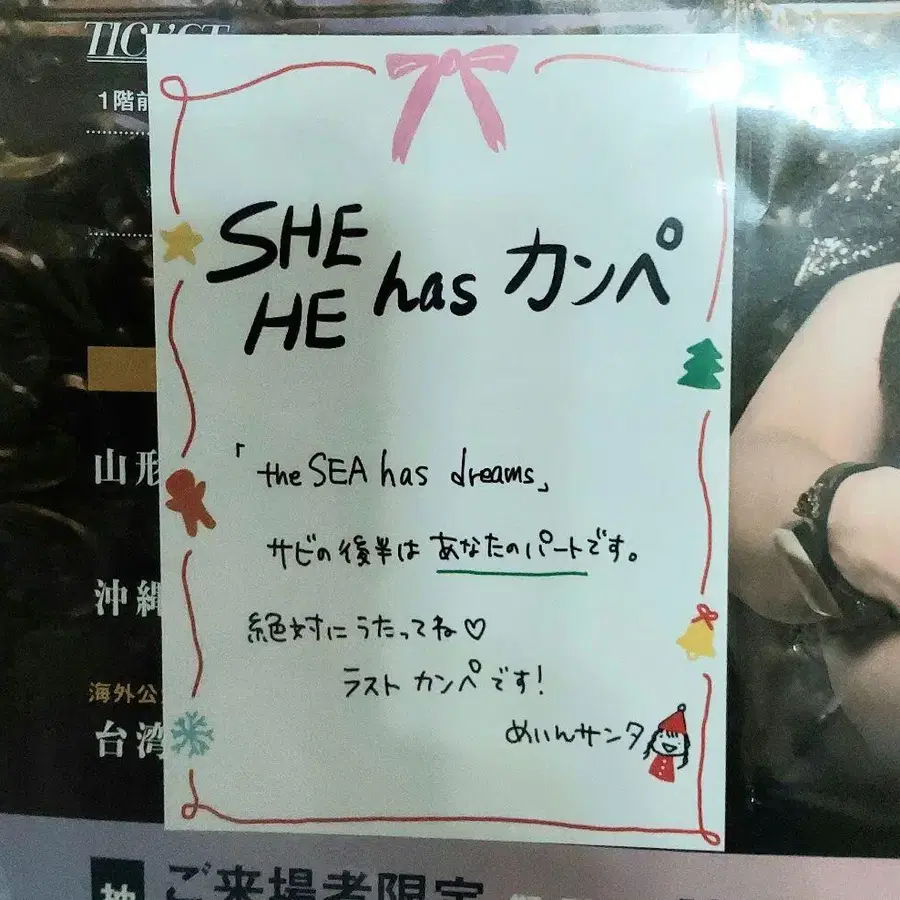 TICKET
1階前
山形
沖縄
海外公
台湾
SHE
HE has カンペ
「the SEA has dreams」
サビの後半は あなたのパートです。
絶対にうたってね♡
ラスト カンペです!
めいんサンタ
ご来場者限定